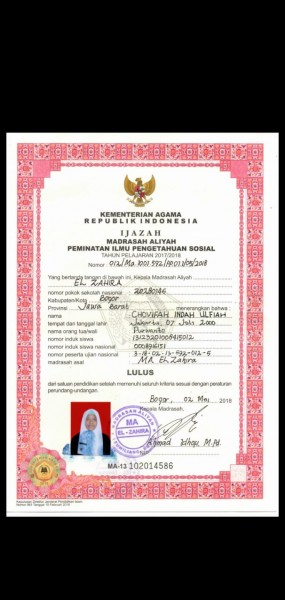 KEMENTERIAN AGAMA
REPUBLIK INDONESIA
IJAZAH
MADRASAH ALIYAH
PEMINATAN ILMU PENGETAHUAN SOSIAL
TAHUN PELAJARAN 2017/2018
Nomor :
Yang bertanda tangan di bawah ini, Kepala Madrasah Aliyah
EL ZAHIRA
nomor pokok sekolah nasional 20280186
Kabupaten/Kota Bogor
Provinsi Jawa Barat menerangkan bahwa :
nama CHOVIFAH INDAH ULFIAH
tempat dan tanggal lahir Jakarta, 07 Juli 2000
nama orang tua/wali Purwanto
nomor induk siswa
nomor induk siswa nasional
nomor peserta ujian nasional 3-18-02-13-422-012-5
madrasah asal MA El Zahira
LULUS
dari satuan pendidikan setelah memenuhi seluruh kriteria sesuai dengan peraturan
perundang-undangan.
Bogor, 02 Mei 2018
Kepala Madrasah,
MADRASAH ALIYAH
MA
EL-ZAHIRA
Ahmad M.Pd
MA-13 102014586